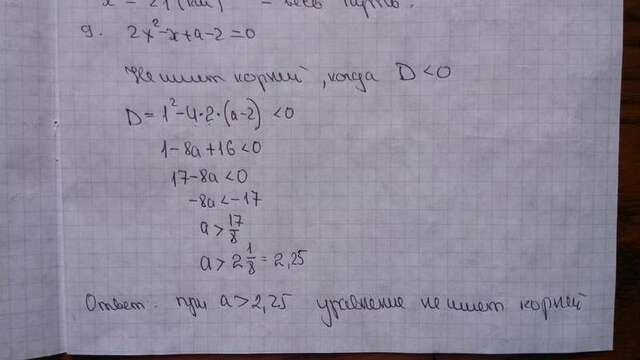 x = 21 (км) – весь
9. 2x²-x+a-2=0
Не имеет корней, когда D<0
D=1²-4·2·(a-2)<0
1-8a+16<0
17-8a<0
-8a<-17
a>17/8
a>2 1/8=2,25
Ответ: при a>2,25 уравнение не имеет корней